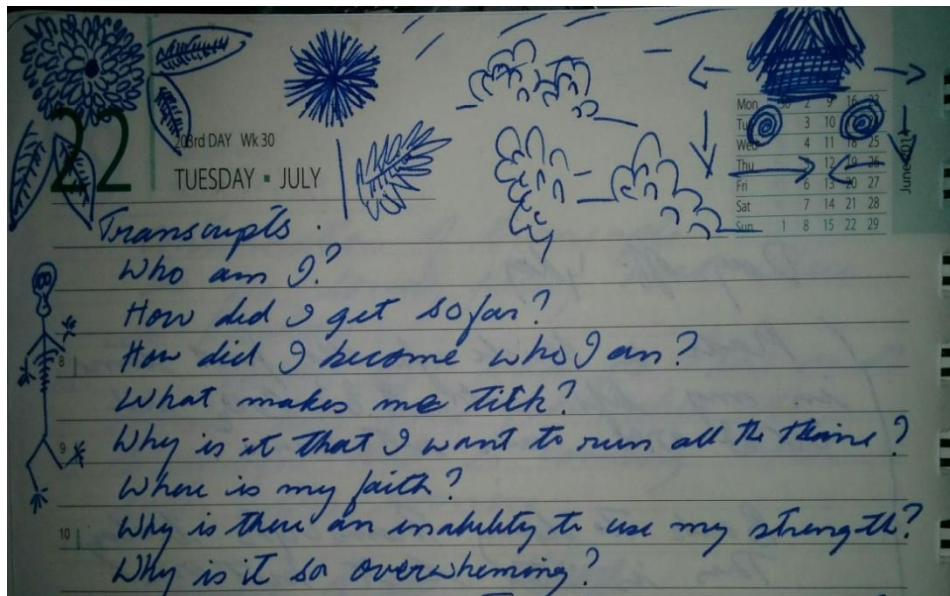 22
203rd DAY Wk 30
TUESDAY ▪ JULY
Mon 30 2 9 16 23
3 10
Wed 4 11 18 25
Thu 12 19 26
Fri 6 13 20 27
Sat 7 14 21 28
Sun 1 8 15 22 29
Transcripts.
Who am I?
How did I get so far?
How did I become who I am?
What makes me tick?
Why is it that I want to run all the
Where is my faith?
Why is there an inability to use my strength?
Why is it so overwheming?
8
9
10